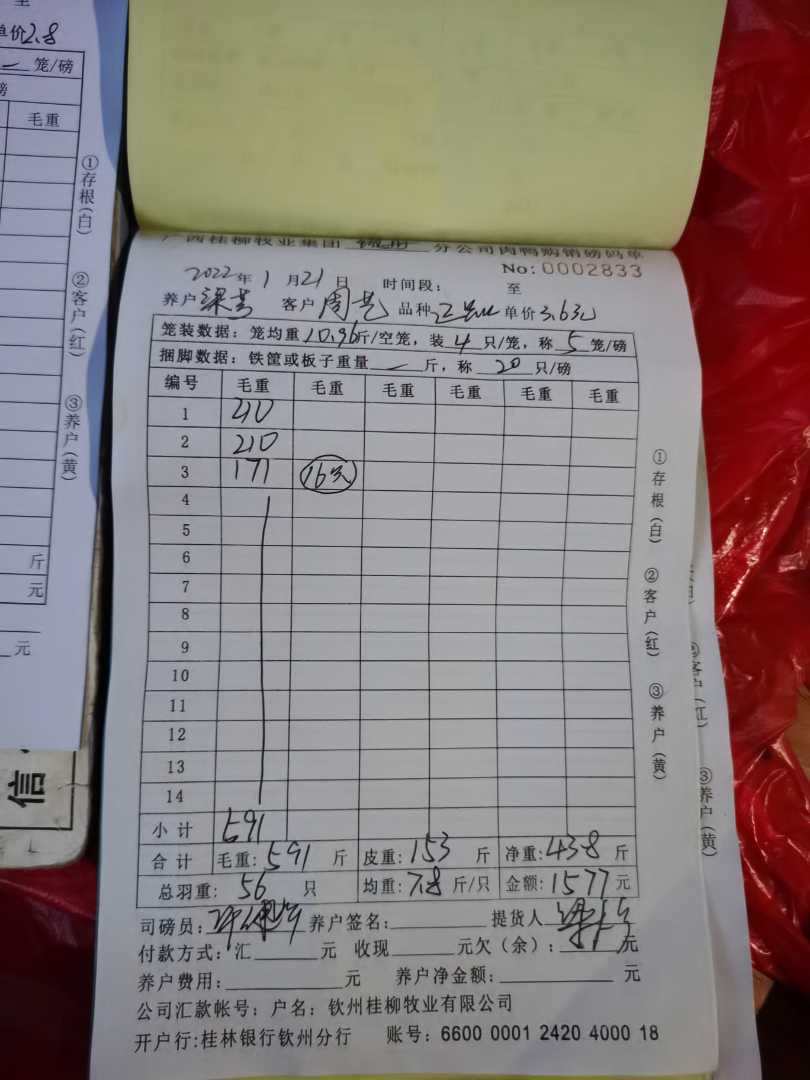 单价2.8
笼/磅
毛重
①存根(白)
②客户(红)
③养户(黄)
斤
元
元
信
广西桂柳牧业集团 钦州 分公司肉鸭购销磅码单
No:0002833
2022年1月21日 时间段: 至
养户 客户 周 品种 单价3.63元
笼装数据:笼均重10.96斤/空笼,装4只/笼,称5笼/磅
捆脚数据:铁筐或板子重量 一 斤,称 20 只/磅
编号 毛重 毛重 毛重 毛重 毛重 毛重
1 210
2 210
3 171 (16只)
4
5
6
7
8
9
10
11
12
13
14
小计 591
合计 毛重:591斤 皮重:153斤 净重:438斤
总羽重:56只 均重:7.8斤/只 金额:1577元
司磅员: 养户签名: 提货人
付款方式:汇 元 收现 元欠(余): 元
养户费用: 元 养户净金额: 元
公司汇款帐号:户名:钦州桂柳牧业有限公司
开户行:桂林银行钦州分行 账号:6600 0001 2420 4000 18
①存根(白)
②客户(红)
③养户(黄)
③养户(黄)